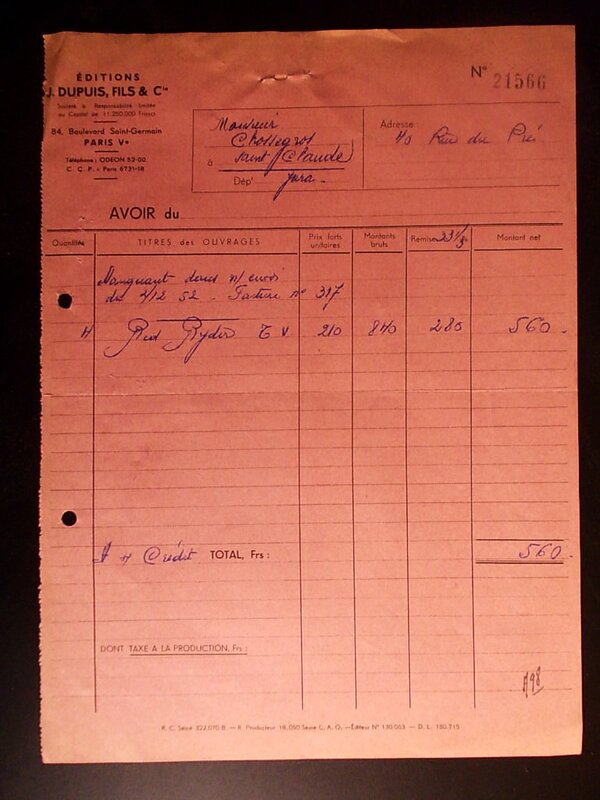 ÉDITIONS
J. DUPUIS, FILS & Cie
Société à Responsabilité limitée
au Capital de 11.250.000 Francs
84, Boulevard Saint-Germain
PARIS Ve
Téléphone : ODEON 52-00
C. C. P. : Paris 6731-18
N° 21566
Monsieur
Chossegros
à Saint Claude
Dépt Jura
Adresse : 40 Rue du Pré
AVOIR du
Quantités TITRES des OUVRAGES Prix forts unitaires Montants bruts Remise 33 1/3 Montant net
Manquant dans n/ envoi
du 2/12 52 - Facture n° 317
4 Red Ryder T V 210 840 280 560 -
Crédit TOTAL, Frs : 560 -
DONT TAXE A LA PRODUCTION, Frs :
R. C. Seine 322.070 B. — R. Producteur 18.050 Seine C. A. O. — Éditeur N° 130.053 — D. L. 180.715